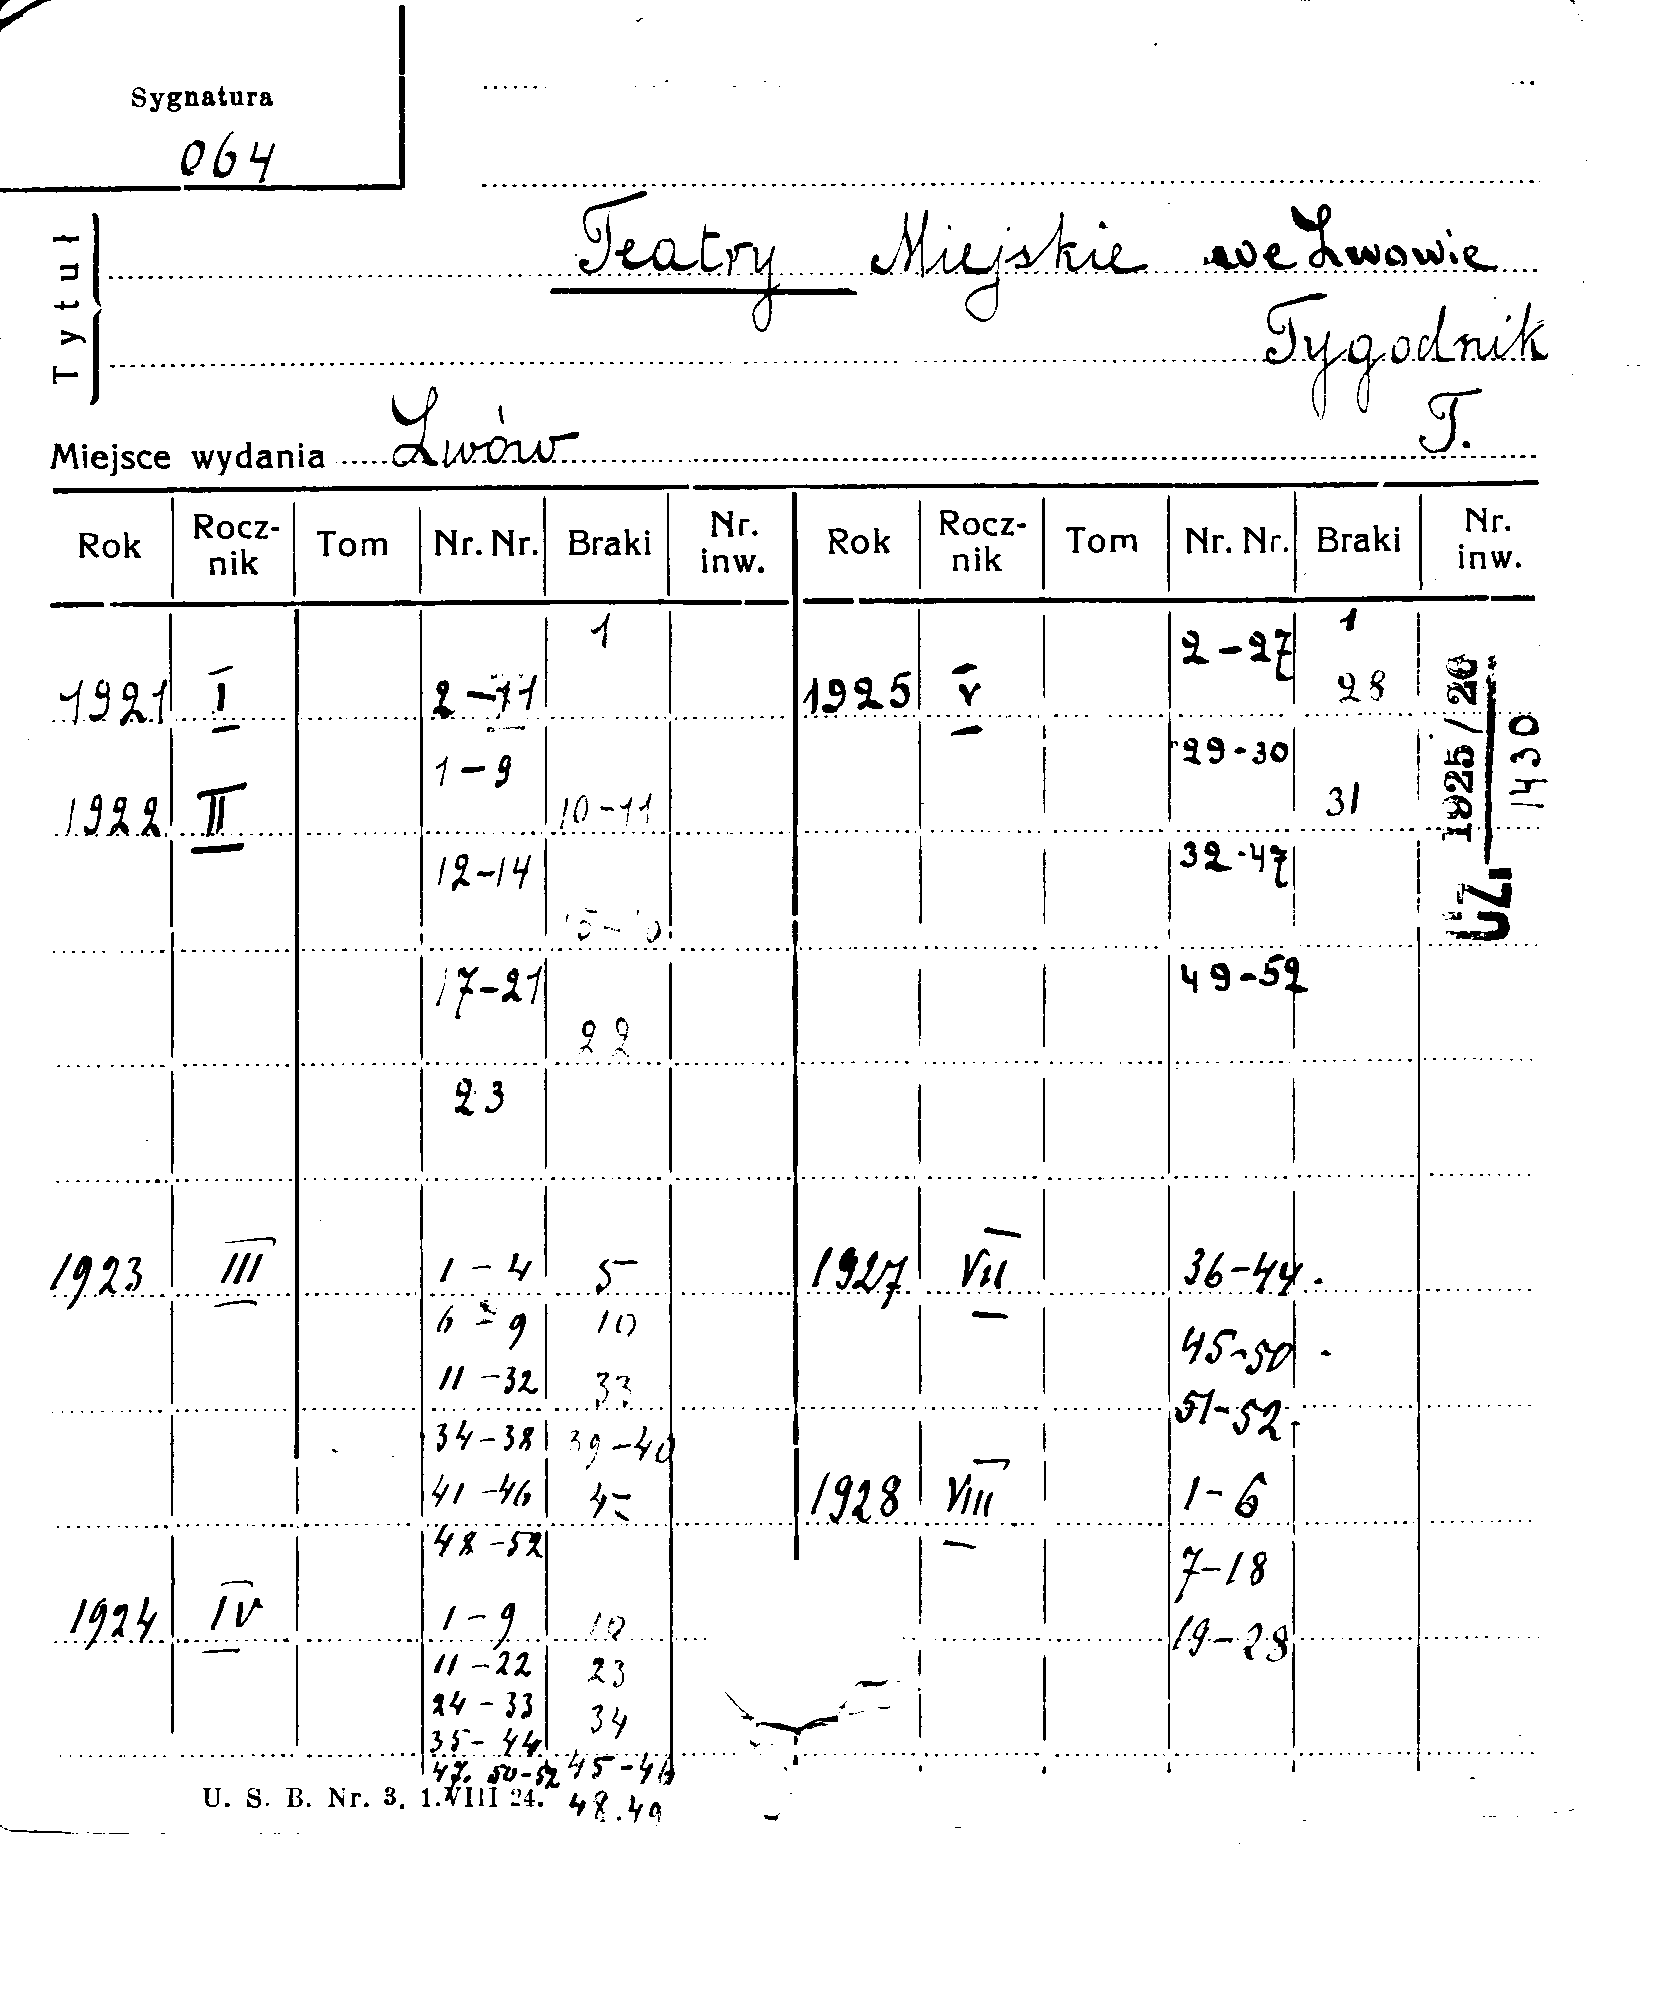 Sygnatura
064
Tytuł
Teatry Miejskie we Lwowie
Tygodnik
T.
Miejsce wydania Lwów
Rok Rocz-nik Tom Nr. Nr. Braki Nr. inw. Rok Rocz-nik Tom Nr. Nr. Braki Nr. inw.
1
1921 I 2-11
1-9
1922 II 10-11
12-14
17-21
22
23
1923 III 1-4 5
6-9 10
11-32 33
34-38 39-40
41-46
48-52
1924 IV 1-9 10
11-22 23
24-33 34
35-44
47. 50-52 45-46
48.49
2-27 1
1925 V 28
29-30
31
32-47
49-52
UZ. 1925/26
1430
1927 VII 36-44.
45-50.
51-52.
1928 VIII 1-6
7-18
19-28
U. S. B. Nr. 3. 1.VIII 24.